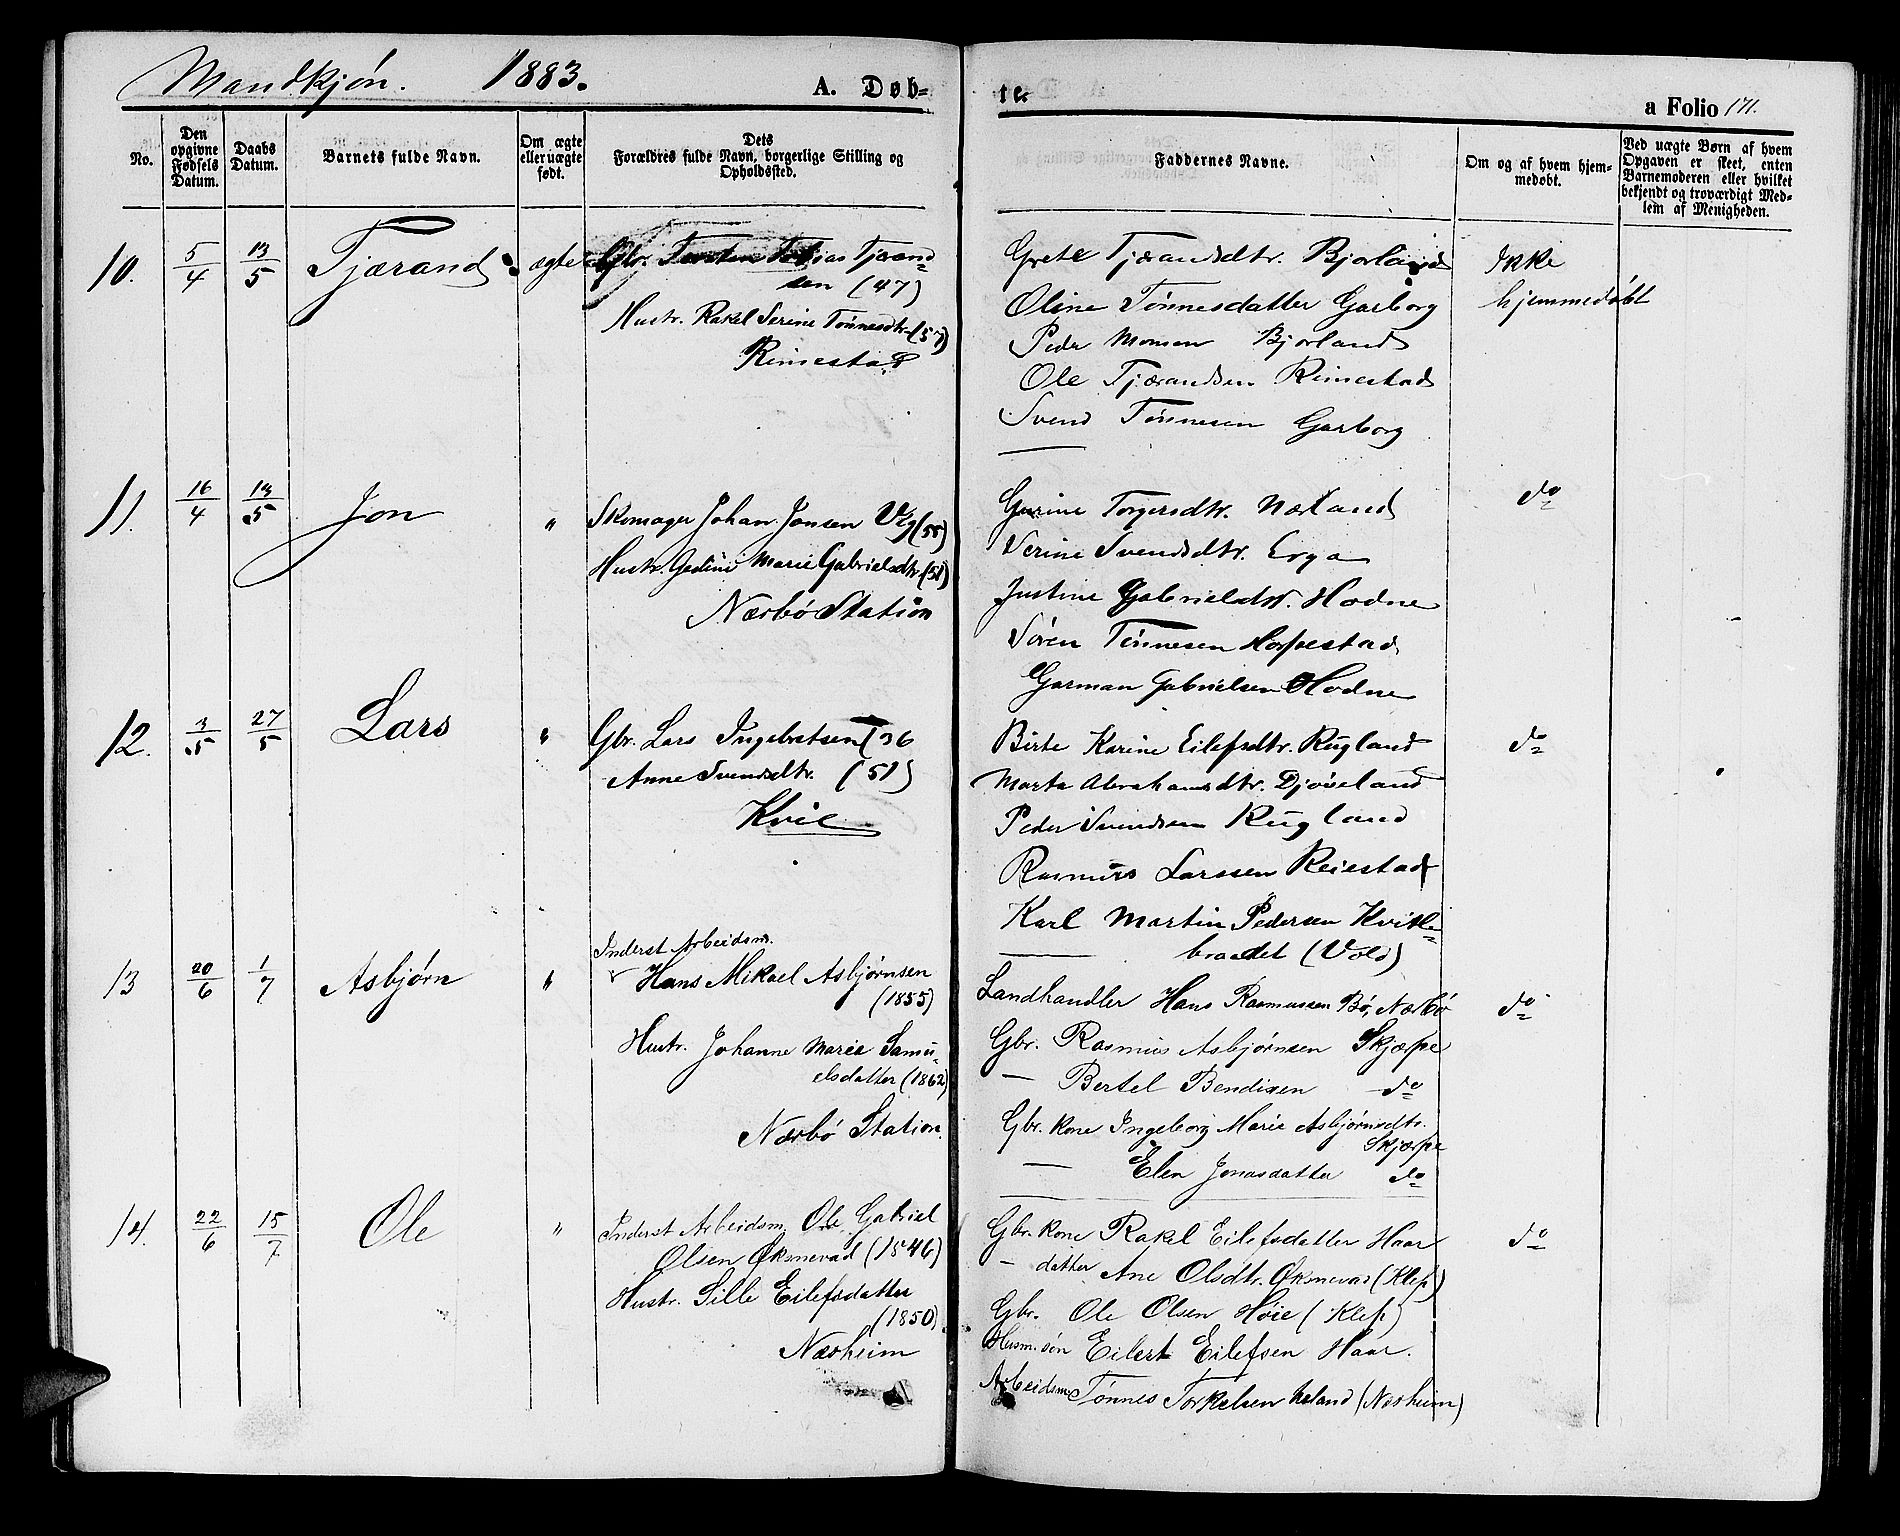 Mandkjøn. 1883. A. Døb-
te.
a Folio 171.
No.
Den opgivne Fødsels Datum.
Daabs Datum.
Barnets fulde Navn.
Om ægte eller uægte født.
Dets Forældres fulde Navn, borgerlige Stilling og Opholdssted.
Faddernes Navne.
Om og af hvem hjem-
medøbt.
Ved uægte Børn af hvem
Opgaven er skeet, enten
Barnemoderen eller hvilket
bekjendt og troværdigt Med-
lem af Menigheden.
10. 5/4 13/5 Tjærand ægte
Gbr. Torsten Tobias Tjærand-
sen (47)
Hustr. Rakel Serine Tønnesdtr. (57)
Rimestad
Grete Tjærandsdtr. Bjorland
Oline Tønnesdatter Garborg
Peder Monsen Bjorland
Ole Tjærandsen Rimestad
Svend Tønnesen Garborg
Ikke
hjemmedøbt
11. 16/4 13/5 Jon "
Skomager Johan Jonsen (55)
Hustr. Gedine Marie Gabrielsdtr. (51)
Nærbø Station
Gurine Torgersdtr. Nærland
Serine Svendsdtr. Erga
Justine Gabrielsdtr. Hodne
Søren Tønnesen Horpestad
Garman Gabrielsen Hodne
do
12. 3/5 27/5 Lars "
Gbr. Lars Ingebretsen (36
Anne Svendsdtr. (51)
Kvie
Birte Karine Eilefsdtr. Rugland
Marta Abrahamsdtr. Djøseland
Peder Svendsen Rugland
Rasmus Larssen Reiestad
Karl Martin Pedersen Kvitle-
braadet (Vold)
do
13 20/6 1/7 Asbjørn "
Inderst Arbeidsm.
Hans Mikael Asbjørnsen
(1855)
Hustr. Johanne Marie Samu-
elsdatter (1862)
Nærbø Station.
Landhandler Hans Rasmussen Bø, Nærbø
Gbr. Rasmus Asbjørnsen Skjærpe
— Bertel Bendixen do
Gbr. kone Ingeborg Marie Asbjørnsdtr.
Skjærpe
— Elen Jonasdatter do
do
14. 22/6 15/7 Ole "
Inderst Arbeidsm. Ole Gabriel
Olsen Øksnevad (1846)
Hustr. Sille Eilefsdatter
(1850)
Næsheim
Gbr. kone Rakel Eilefsdatter Haar
— datter Ane Olsdtr. Øksnevad (Klep)
Gbr. Ole Olsen Høie (Klep)
Husm. søn Eilert Eilefsen Haar.
Arbeidsm. Tønnes Torkelsen (Næsheim)
do